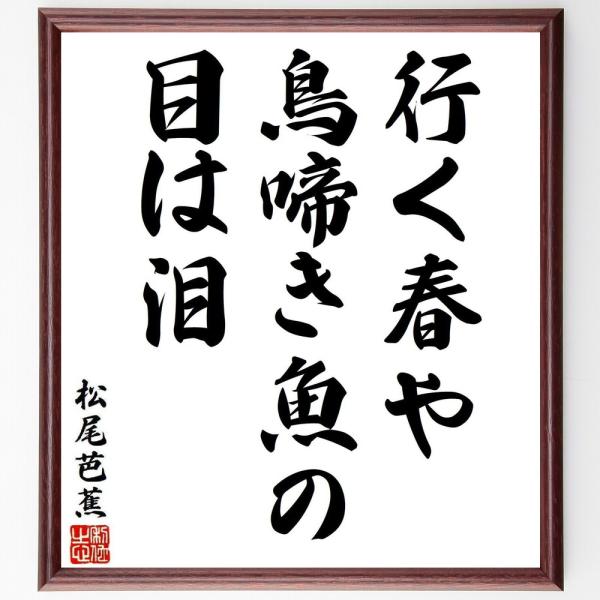 行く春や
鳥啼き魚の
目は泪
松尾芭蕉